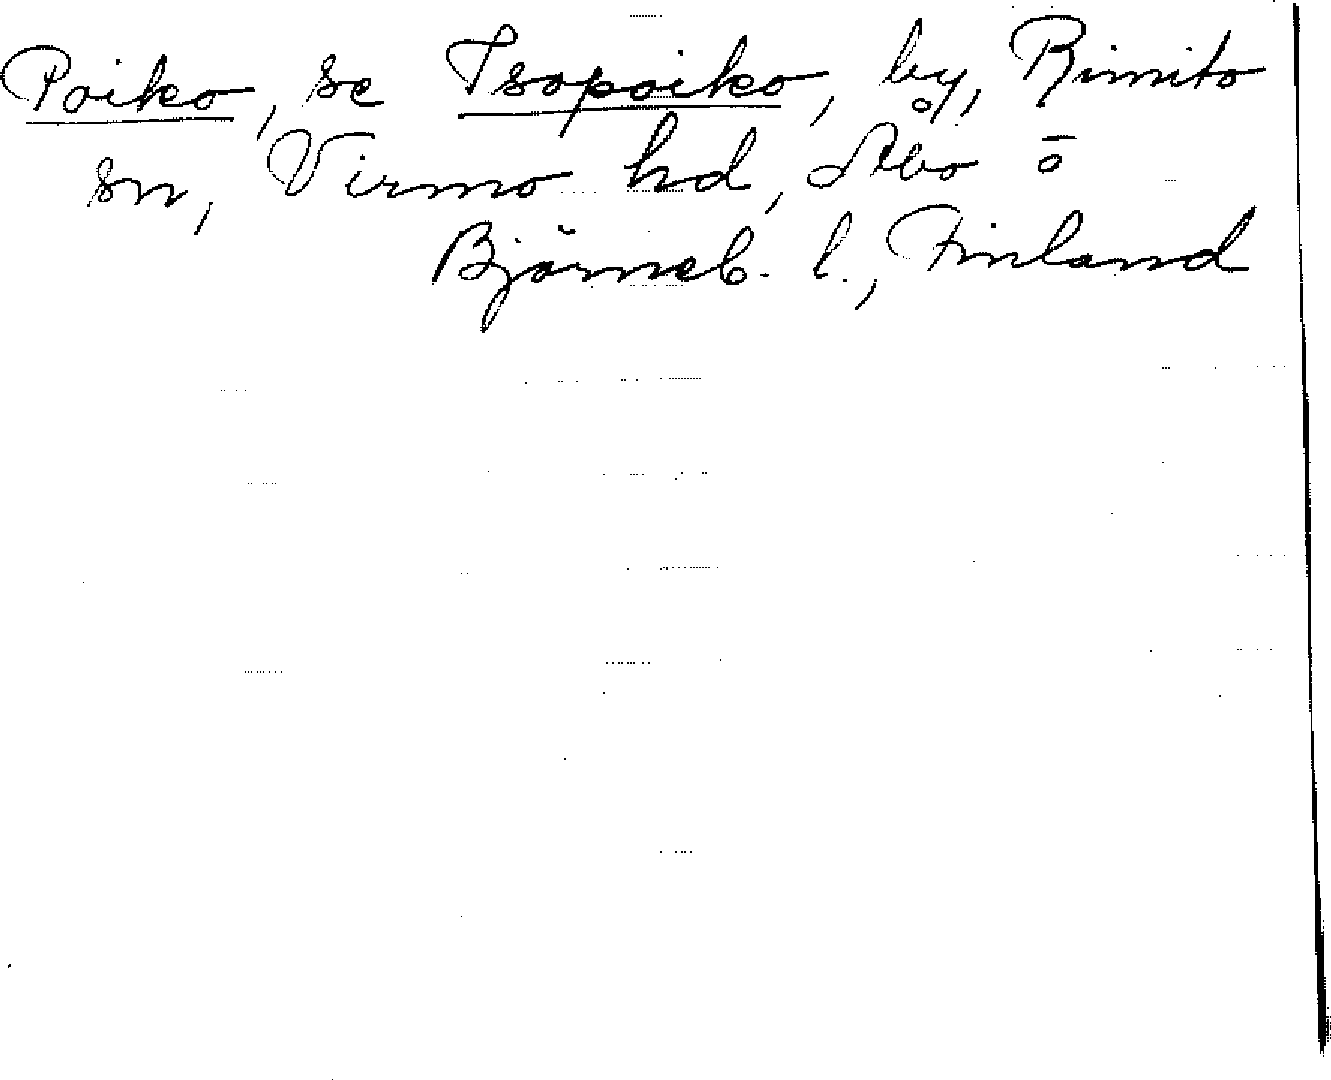 Poiko, se Isopoiko, by, Rimito
sn, Virmo hd, Åbo o
Björneb. l., Finland